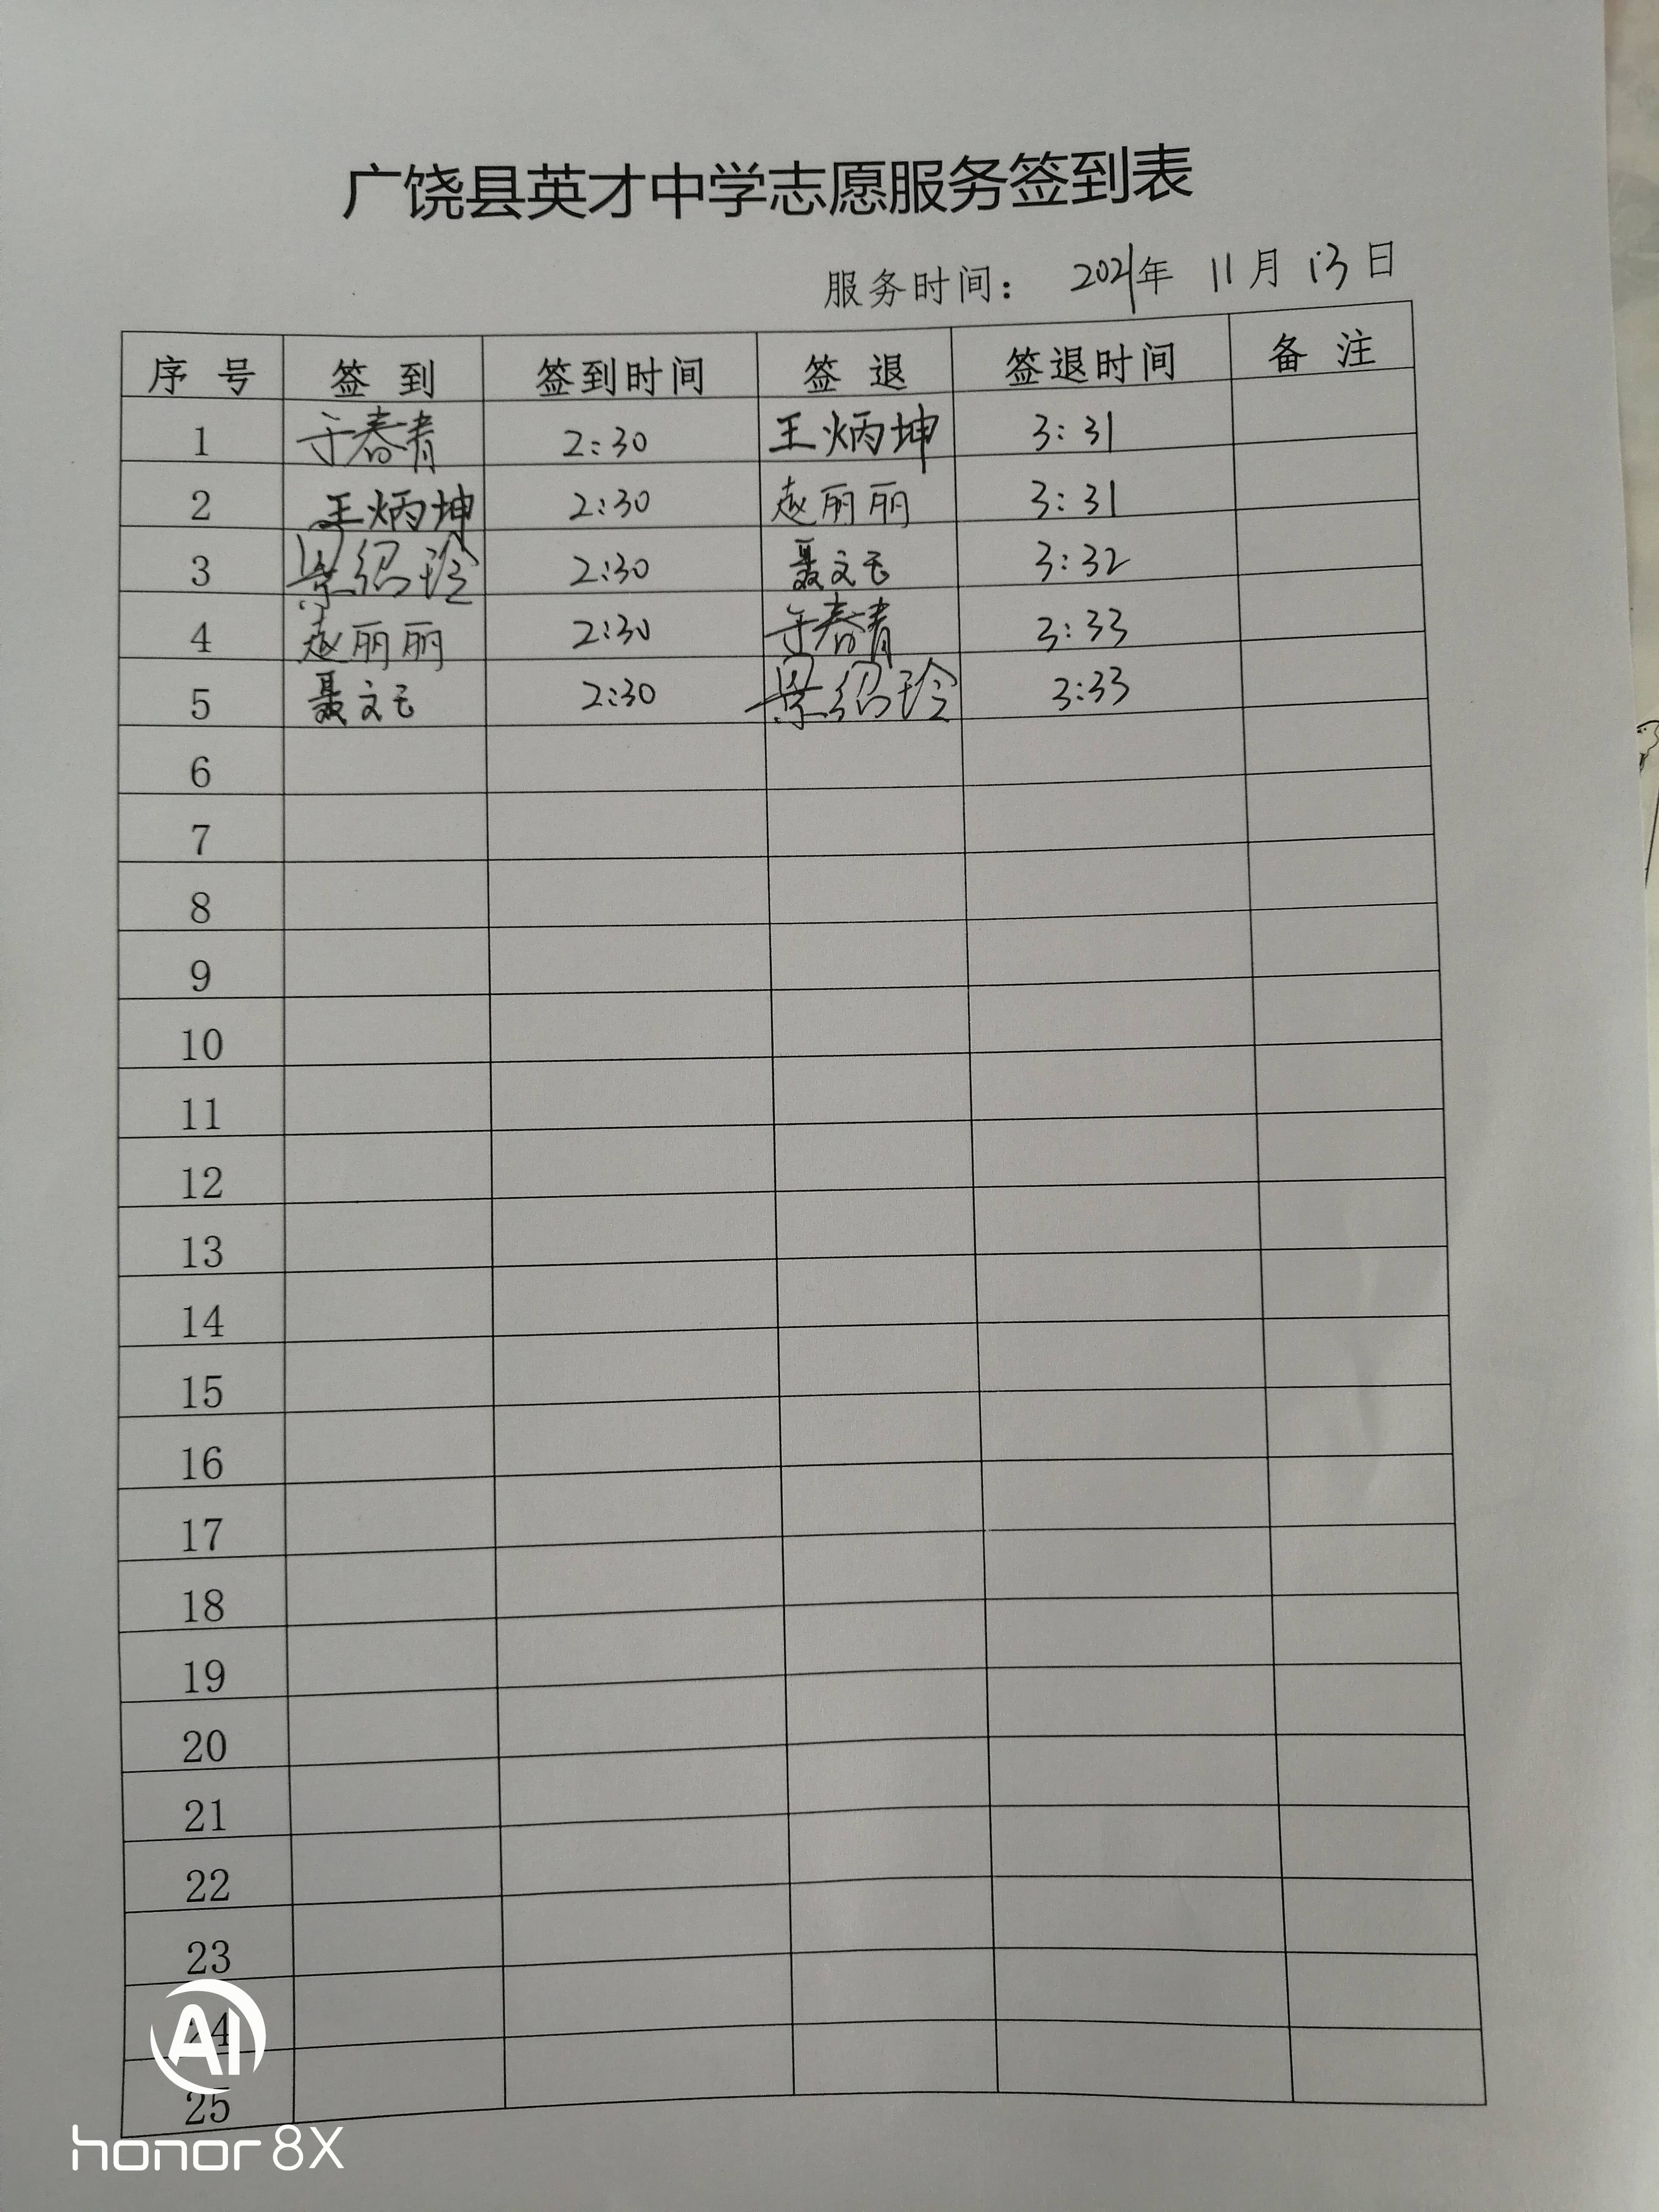 广饶县英才中学志愿服务签到表
服务时间： 2021年 11月 13日
序号 签到 签到时间 签退 签退时间 备注
1 于春青 2:30 王炳坤 3:31
2 王炳坤 2:30 赵丽丽 3:31
3 景绍玲 2:30 聂文玉 3:32
4 赵丽丽 2:30 于春青 3:33
5 聂文玉 2:30 景绍玲 3:33
6
7
8
9
10
11
12
13
14
15
16
17
18
19
20
21
22
23
24
25
AI
honor 8X